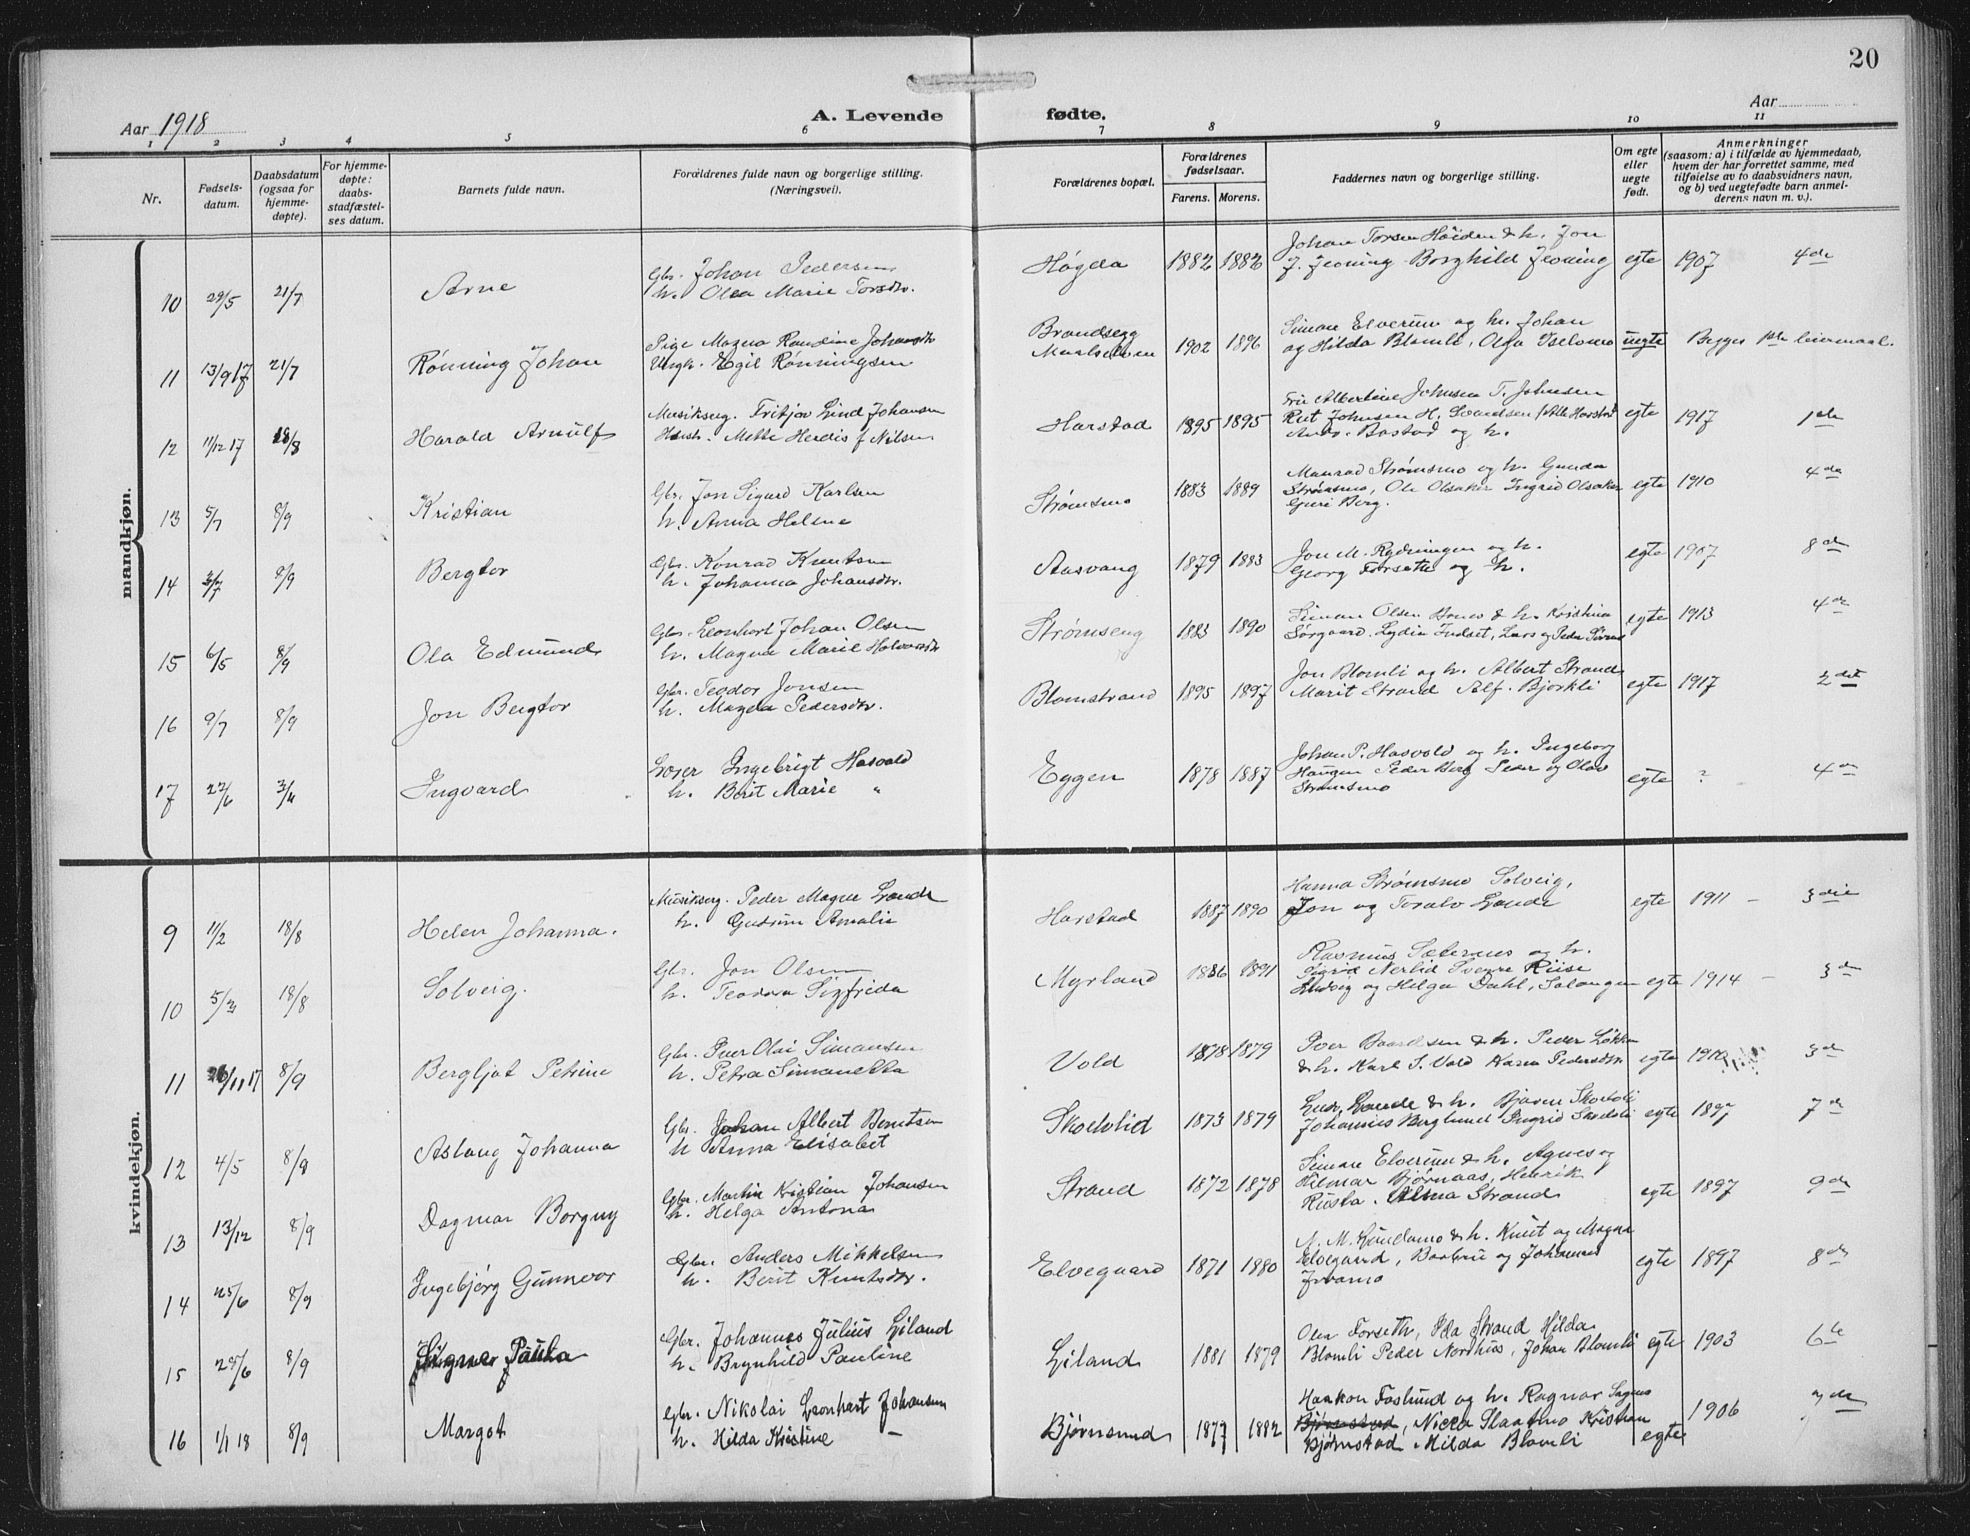 20
Aar 1918
A. Levende fødte.
Aar
1 2 3 4 5 6 7 8 9 10 11
Nr.
Fødsels-
datum.
Daabsdatum
(ogsaa for
hjemme-
døpte).
For hjemme-
døpte:
daabs-
stadfæstel-
ses datum.
Barnets fulde navn.
Forældrenes fulde navn og borgerlige stilling.
(Næringsvei).
Forældrenes bopæl.
Forældrenes
fødselsaar.
Farens. Morens.
Faddernes navn og borgerlige stilling.
Om egte
eller
uegte
født.
Anmerkninger
(saasom: a) i tilfælde av hjemmedaab,
hvem der har forrettet samme, med
tilføielse av to daabsvidners navn,
og b) ved uegtefødte barn anmel-
derens navn m. v.).
mandkjøn.
10 29/5 21/7 Arne
Gbr. Johan Pedersen
h. Olea Marie Torsdtr.
Høgda 1882 1882
Johan Torsen Høiden & h. Jon
J. Fleming Borghild Fleming
egte 1907 4de
11 13/9 17 21/7 Rønning Johan
Pige Magna Randine Johansdtr
Ungk. Egil Rønningsen
Brandsegg
Maalselven 1902 1896
Simon Elverum og h. Johan
og Hilda Blomli, Olga
uegte Begges 1ste leiermaal.
12 11/12 17 18/8 Harald Arnulf
Musikserg. Fritjov Lind Johansen
Hustr. Mette Herdis f Nilsen
Harstad 1895 1895
Fru Albertine Johnsen T. Johnsen
Rut Johnsen H. Svendsen (Alle Harstad
Andr. Bostad og h.
egte 1917 1ste
13 5/7 8/9 Kristian
Gbr. Jon Sigurd Karlsen
h. Anna Helene
Strømsmo 1883 1889
Manrad Strømsmo og h. Gunda
Strømsmo, Ole Olsaker Ingrid Olsaker
Guri Berg.
egte 1910 4de
14 3/7 8/9 Bergtor
Gbr. Konrad Knutsen
h. Johanna Johansdtr.
Aasvang 1879 1883
Jon M. Rydningen og h.
Georg Forseth og h.
egte 1907 8de
15 6/5 8/9 Ola Edmund
Gbr. Leonhart Johan Olsen
h. Magna Marie Halvorsdtr
Strømseng 1883 1890
Simon Olsen & h. Kristina
Sørgaard. Lydia Indset, Lars og Peder
egte 1913 4de
16 9/7 8/9 Jon Bergtor
Gbr. Teodor Jonsen
h. Magda Pedersdtr.
Blomstrand 1895 1897
Jon Blomli og h. Albert Strand
Marit Strand Alf. Bjørkli
egte 1917 2det
17 22/6 3/11 Ingvard
Lærer Ingebrigt Hasvold
h. Berit Marie "
Eggen 1878 1887
Johan P. Hasvold og h. Ingeborg
Haugen Peder Berg Peder og Olav
Strømsmo
egte ? 4de
kvindekjøn.
9 11/2 18/8 Helen Johanna.
Musikserg. Peder Magnus Lande
h. Gudrun Amalie
Harstad 1887 1890
Hanna Strømsmo Solveig,
Jon og Toralv Lande
egte 1911 – 3die
10 5/3 18/8 Solveig.
Gbr. Jon Olsen
h. Teodora Sigfrida
Myrland 1886 1891
Rasmus Sæternes og h.
Sigrid Nerlid Sverre Riise
Ludvig og Helga Dahl, Salangen
egte 1914 – 3de
11 26/11 17 8/9 Bergljot Petrine
Gbr. Iver Olai Simonsen
h. Petra Simonetta
Vold 1878 1879
Iver Baardsen & h. Peder Løkken
& h. Karl S. Vold Karen Pedersdtr
egte 1910 3de
12 4/5 8/9 Aslaug Johanna
Gbr. Johan Albert Berntsen
h Anna Elisabet
Skoelvlid 1873 1879
Ludv. Lande & h. Bjarne
Johannes Berglund Ingrid
egte 1897 7de
13 13/12 8/9 Dagmar Borgny
Gbr. Martin Kristian Johansen
h. Helga Antona
Strand 1872 1878
Simon Elverum & h. Agnes og
Hilmar Bjørnaas, Henrik
Rusta. Alma Strand
egte 1897 9de
14 25/6 8/9 Ingebjørg Gunnvor
Gbr. Anders Mikkelsen
h. Berit Knutsdtr.
Elvegaard 1871 1880
N. M. Lundamo & h. Knut og Magna
Elvegaard, Barbru og Johannes
egte 1897 8de
15 29/6 8/9 Signe Paula
Gbr. Johannes Julius Liland
h. Brynhild Pauline
Liland 1881 1879
Ole Forseth, Ida Strand Hilda
Blomli Peder Nordhus, Johan Blomli
egte 1903 6te
16 1/1 18 8/9 Margot
Gbr. Nikolai Leonhart Johansen
h. Hilda Kristine –
Bjørnsund 1877 1882
Haakon Foslund og h. Ragnar
Bjørnstad, Slaatmo Kristian
Bjørnstad. Hilda Blomli
egte 1906 7de